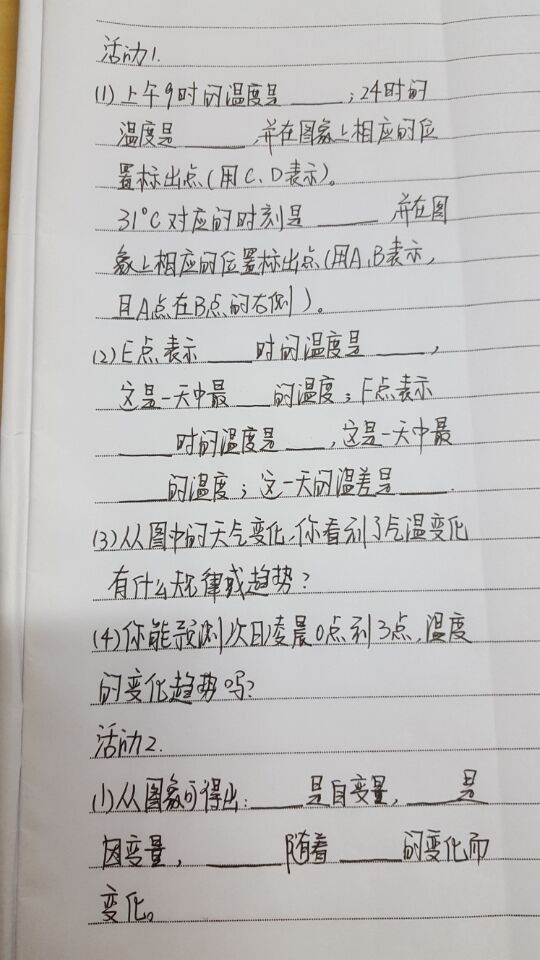 活动1.
(1)上午9时的温度是____;24时的
温度是____,并在图象上相应的位
置标出点(用C、D表示)。
31°C对应的时刻是____并在图
象上相应的位置标出点(用A、B表示,
且A点在B点的右侧)。
(2)E点表示____时的温度是____,
这是一天中最____的温度;F点表示
____时的温度是____,这是一天中最
____的温度;这一天的温差是____.
(3)从图中的天气变化,你看到了气温变化
有什么规律或趋势?
(4)你能预测次日凌晨0点到3点,温度
的变化趋势吗?
活动2.
(1)从图象可得出:____是自变量,____是
因变量,____随着____的变化而
变化。